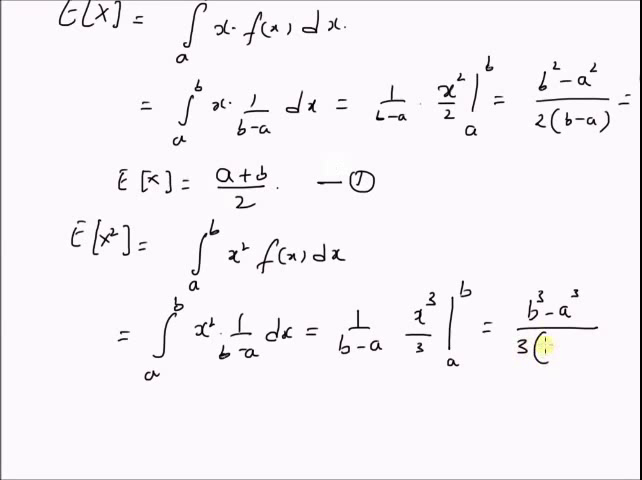 E[X] = ∫ₐ x. f(x) dx.
= ∫ₐᵇ x. 1/(b-a) dx = 1/(b-a) . x²/2 |ₐᵇ = (b² - a²)/(2(b-a)) =
E[x] = (a+b)/2. — ①
E[x²] = ∫ₐᵇ x² f(x) dx
= ∫ₐᵇ x². 1/(b-a) dx = 1/(b-a) x³/3 |ₐᵇ = (b³ - a³)/(3(